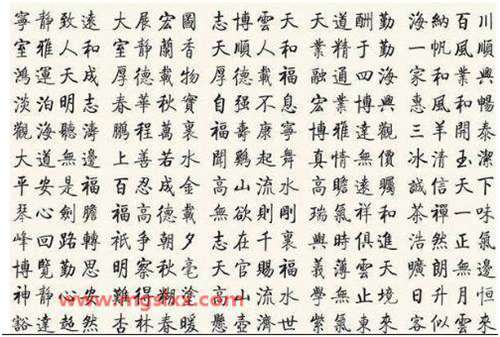 寧靜致遠 大展宏圖 志博雲天 天道酬勤 海納百川
室雅人和 室靜蘭香 大順人和 業精于勤 一帆風順
鴻運天成 厚德載物 厚德載福 融通四海 家和業興
淡泊明志 春華秋實 自强不息 宏業興家 惠風和暢
觀海聽濤 鵬程萬裏 福壽康寧 博雅達觀 三羊開泰
大道無邊 上善若水 聞鷄起舞 真情無價 冰清玉潔
平安是福 百忍成金 高山流水 高瞻遠矚 誠信天下
琴心劍膽 福高德載 無欲則剛 瑞氣祥和 茶禪一味
峰回路轉 祇争朝夕 志在千裏 與時俱進 浩然正氣
博覽勤思 明察秋毫 天官賜福 義薄雲天 朗無邊
神静心安 難得糊塗 高山流水 學無止境 日升月恒
www.mgslxx.com
豁達超然 杏林春暖 懸壺濟世 紫氣東來 客似雲來